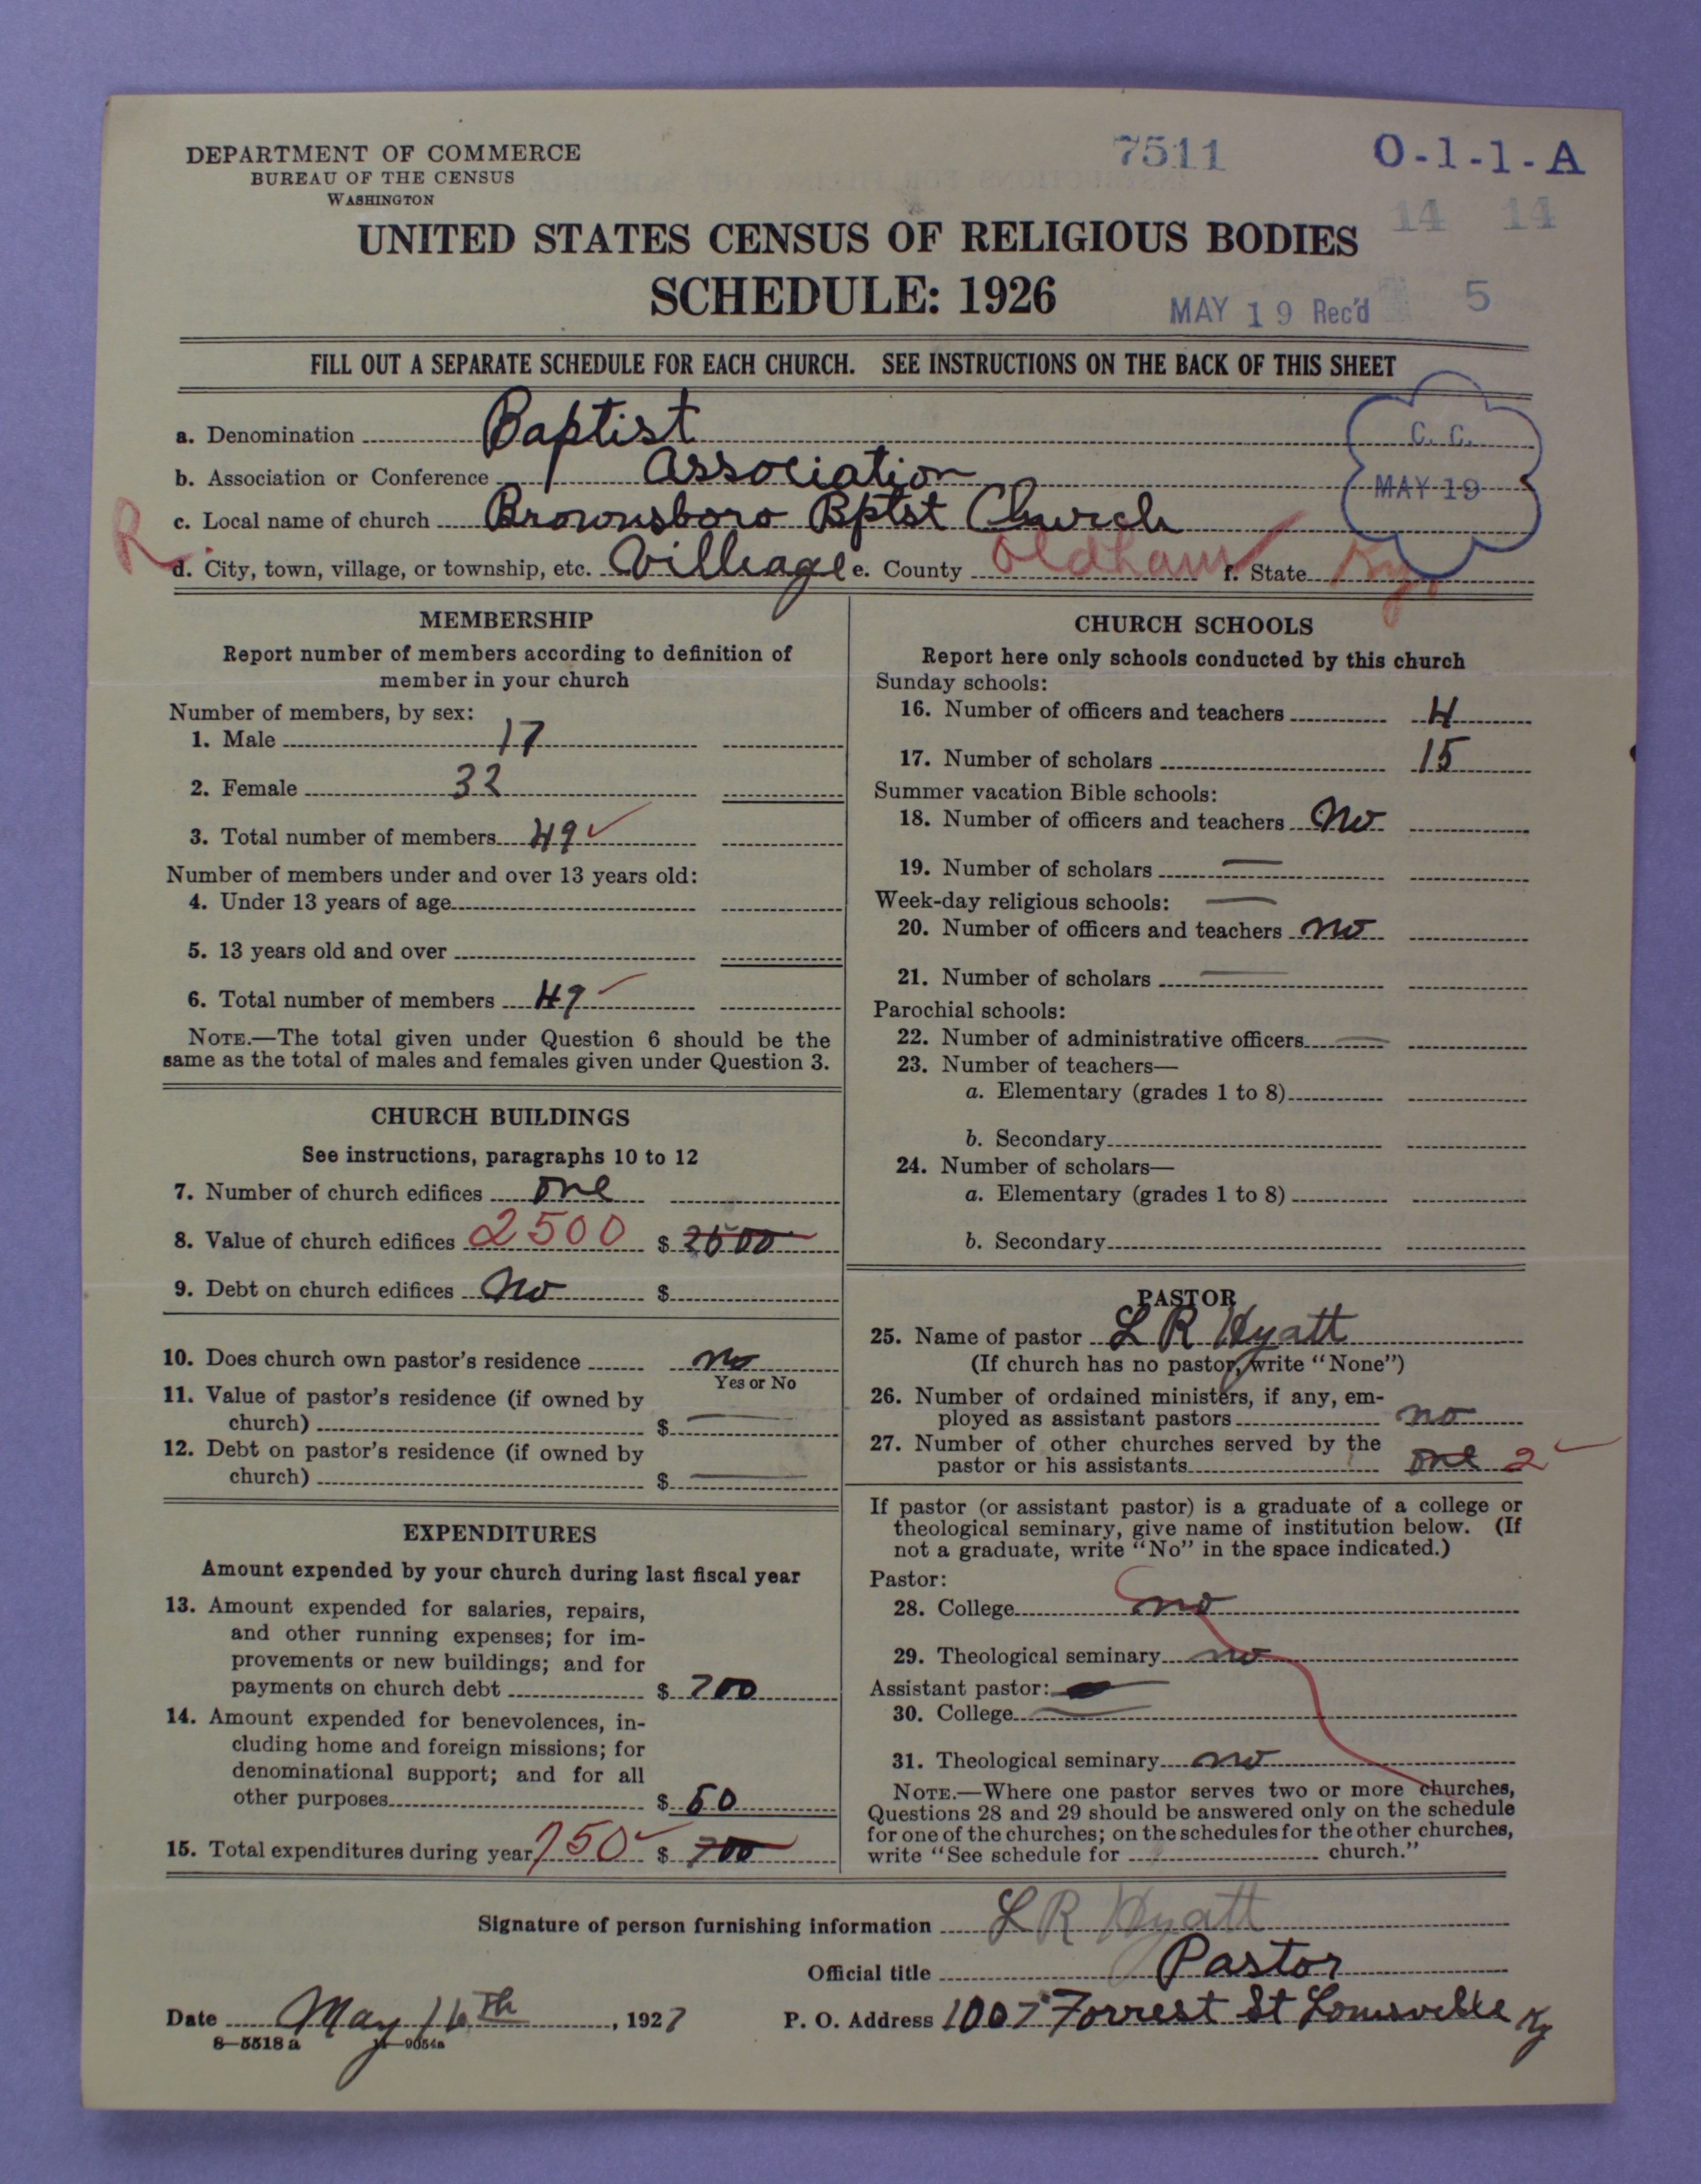 DEPARTMENT OF COMMERCE
BUREAU OF THE CENSUS
WASHINGTON
7511
O-1-1-A
14 14
UNITED STATES CENSUS OF RELIGIOUS BODIES
SCHEDULE: 1926
MAY 19 Rec'd
5
FILL OUT A SEPARATE SCHEDULE FOR EACH CHURCH. SEE INSTRUCTIONS ON THE BACK OF THIS SHEET
C. C.
MAY 19
a. Denomination Baptist
b. Association or Conference Association
c. Local name of church Brownsboro Bptst Church
R
d. City, town, village, or township, etc. Villeage e. County Oldham f. State Ky.
MEMBERSHIP
Report number of members according to definition of
member in your church
Number of members, by sex:
1. Male 17
2. Female 32
3. Total number of members 49
Number of members under and over 13 years old:
4. Under 13 years of age
5. 13 years old and over
6. Total number of members 49
NOTE.—The total given under Question 6 should be the
same as the total of males and females given under Question 3.
CHURCH BUILDINGS
See instructions, paragraphs 10 to 12
7. Number of church edifices one
8. Value of church edifices 2500 $ 2500
9. Debt on church edifices No $
10. Does church own pastor's residence no
Yes or No
11. Value of pastor's residence (if owned by
church) $ —
12. Debt on pastor's residence (if owned by
church) $ —
EXPENDITURES
Amount expended by your church during last fiscal year
13. Amount expended for salaries, repairs,
and other running expenses; for im-
provements or new buildings; and for
payments on church debt $ 700
14. Amount expended for benevolences, in-
cluding home and foreign missions; for
denominational support; and for all
other purposes $ 50
15. Total expenditures during year 750 $ 700
CHURCH SCHOOLS
Report here only schools conducted by this church
Sunday schools:
16. Number of officers and teachers 4
17. Number of scholars 15
Summer vacation Bible schools:
18. Number of officers and teachers No
19. Number of scholars —
Week-day religious schools: —
20. Number of officers and teachers no
21. Number of scholars —
Parochial schools:
22. Number of administrative officers —
23. Number of teachers—
a. Elementary (grades 1 to 8)
b. Secondary
24. Number of scholars—
a. Elementary (grades 1 to 8)
b. Secondary
PASTOR
25. Name of pastor L R Hyatt
(If church has no pastor, write "None")
26. Number of ordained ministers, if any, em-
ployed as assistant pastors no
27. Number of other churches served by the
pastor or his assistants one 2
If pastor (or assistant pastor) is a graduate of a college or
theological seminary, give name of institution below. (If
not a graduate, write "No" in the space indicated.)
Pastor:
28. College no
29. Theological seminary no
Assistant pastor: —
30. College —
31. Theological seminary no
NOTE.—Where one pastor serves two or more churches,
Questions 28 and 29 should be answered only on the schedule
for one of the churches; on the schedules for the other churches,
write "See schedule for church."
Signature of person furnishing information L R Hyatt
Official title Pastor
Date May 16th, 1927 P. O. Address 1007 Forrest St Louisville Ky
8—5518 a